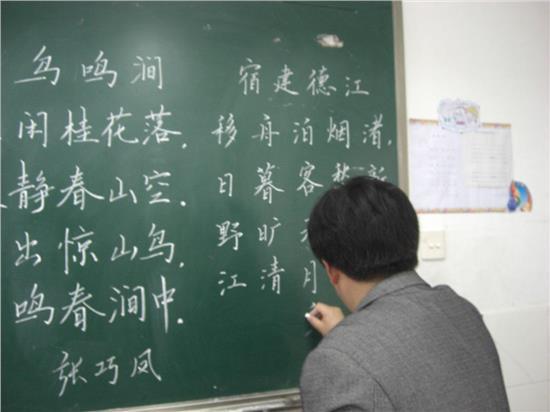 鸟鸣涧
闲桂花落.
静春山空.
出惊山鸟.
鸣春涧中.
张巧凤
宿建德江
移舟泊烟渚,
日暮客愁新
野旷天
江清月